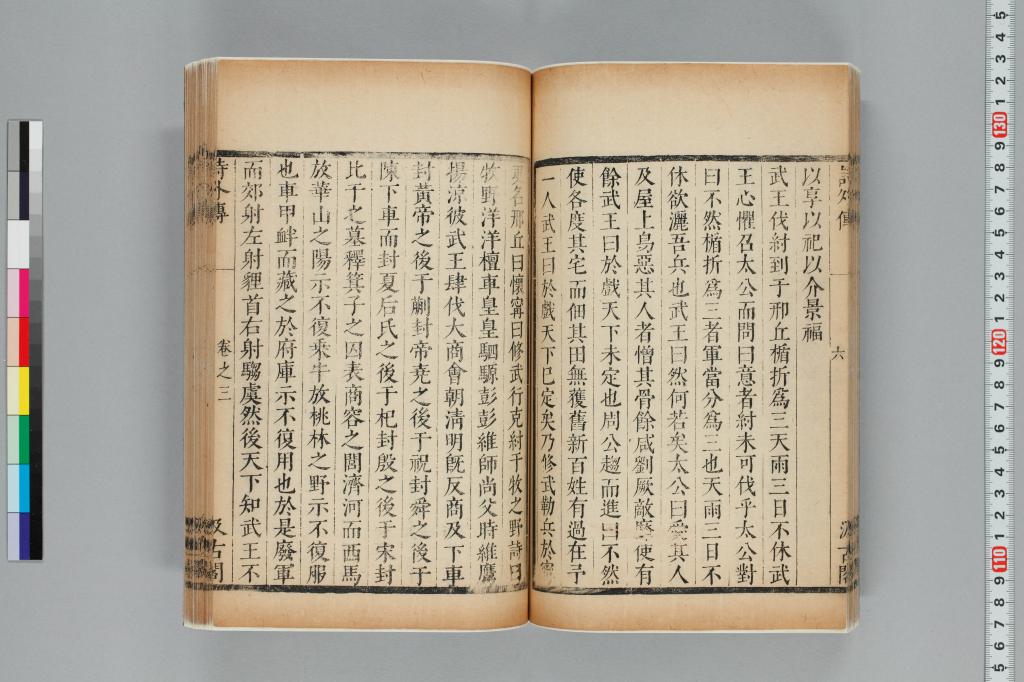 以享以祀以介景福
武王伐紂到于邢丘楯折爲三天雨三日不休武
王心懼召太公而問曰意者紂未可伐乎太公對
曰不然楯折爲三者軍當分爲三也天雨三日不
休欲灑吾兵也武王曰然何若矣太公曰愛其人
及屋上烏惡其人者憎其骨餘咸劉厥敵靡使有
餘武王曰於戲天下未定也周公趨而進曰不然
使各度其宅而佃其田無獲舊新百姓有過在予
一人武王曰於戲天下已定矣乃修武勒兵於寗
更名邢丘曰懷寗曰修武行克紂于牧之野詩曰
牧野洋洋檀車皇皇駟騵彭彭維師尚父時維鷹
揚涼彼武王肆伐大商會朝清明旣反商及下車
封黃帝之後于蒯封帝堯之後于祝封舜之後于
陳下車而封夏后氏之後于杞封殷之後于宋封
比干之墓釋箕子之囚表商容之閭濟河而西馬
放華山之陽示不復乘牛放桃林之野示不復服
也車甲衅而藏之於府庫示不復用也於是廢軍
而郊射左射貍首右射騶虞然後天下知武王不
詩外傳
六
汲古閣
詩外傳
卷之三
汲古閣
5 4 3 2 1 130 9 8 7 6 5 4 3 2 1 120 9 8 7 6 5 4 3 2 1 110 9 8 7 6 5